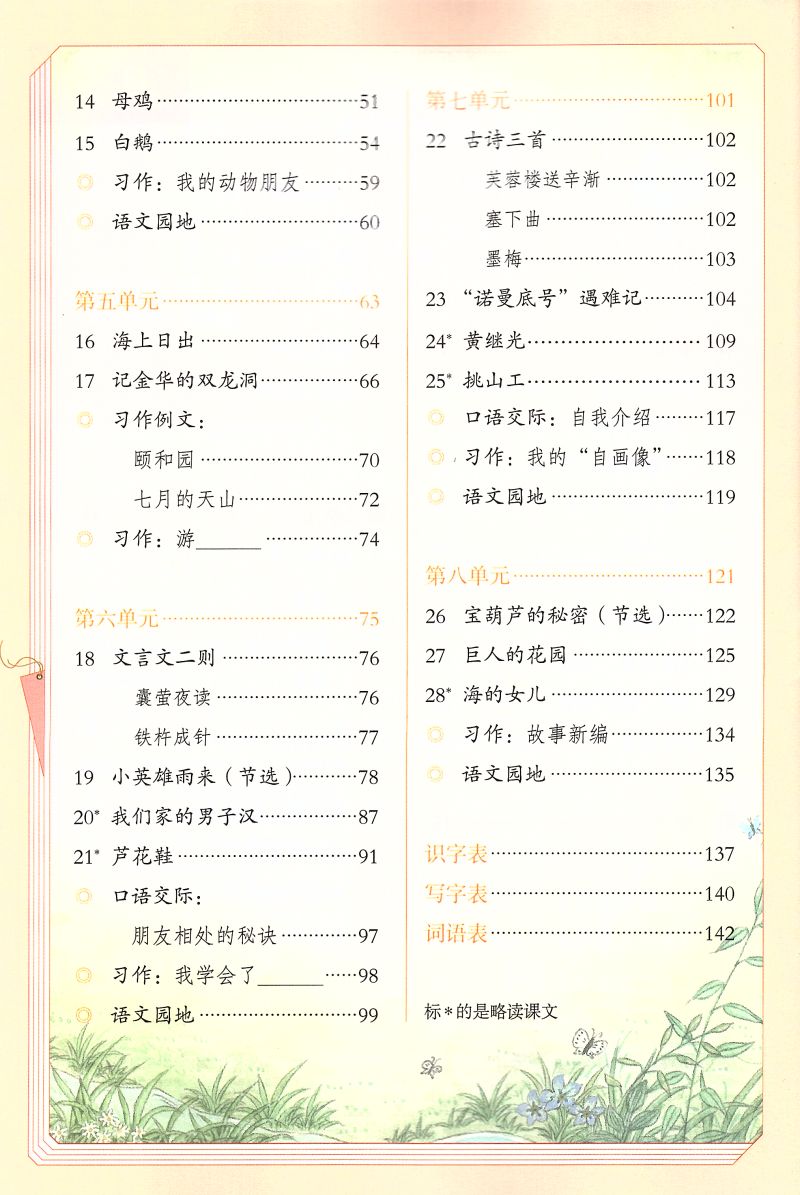 14 母鸡……51
15 白鹅……54
◎ 习作：我的动物朋友……59
◎ 语文园地……60
第五单元……63
16 海上日出……64
17 记金华的双龙洞……66
◎ 习作例文：
颐和园……70
七月的天山……72
◎ 习作：游______……74
第六单元……75
18 文言文二则……76
囊萤夜读……76
铁杵成针……77
19 小英雄雨来（节选）……78
20* 我们家的男子汉……87
21* 芦花鞋……91
◎ 口语交际：
朋友相处的秘诀……97
◎ 习作：我学会了______……98
◎ 语文园地……99
第七单元……101
22 古诗三首……102
芙蓉楼送辛渐……102
塞下曲……102
墨梅……103
23 “诺曼底号”遇难记……104
24* 黄继光……109
25* 挑山工……113
◎ 口语交际：自我介绍……117
◎ 习作：我的“自画像”……118
◎ 语文园地……119
第八单元……121
26 宝葫芦的秘密（节选）……122
27 巨人的花园……125
28* 海的女儿……129
◎ 习作：故事新编……134
◎ 语文园地……135
识字表……137
写字表……140
词语表……142
标*的是略读课文